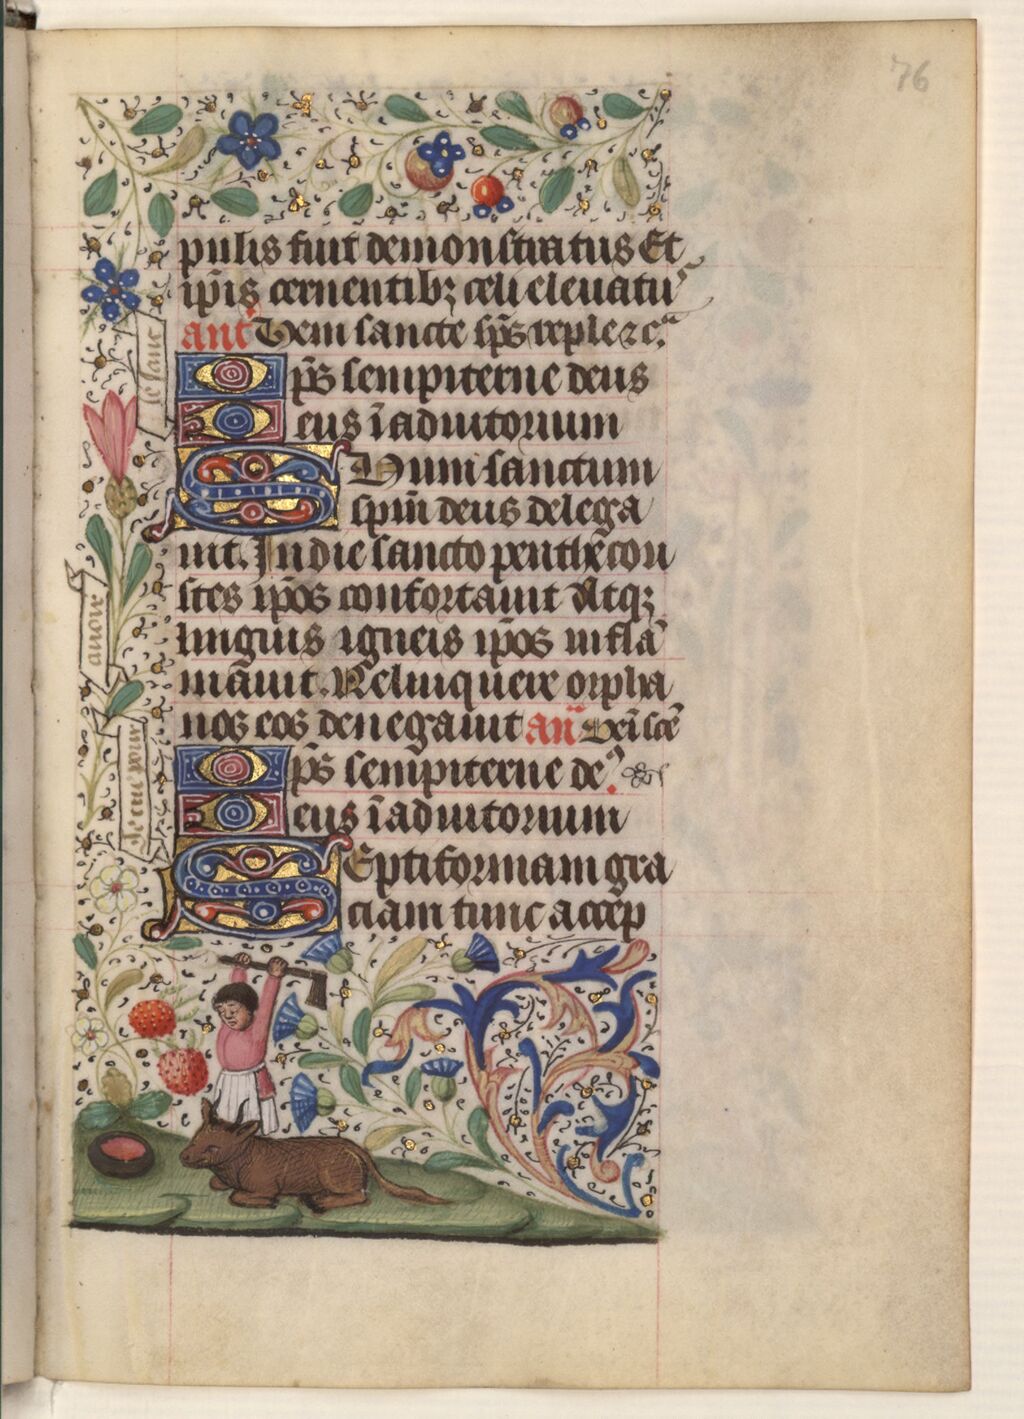 76
pulis fuit demonstratus Et
ip̄is cernentibꝫ celi eleuatu᷒
ant̄ Veni sancte sp̄s reple ⁊ c.ᵃ
O
p̄s sempiterne deus
D
eus ī adiutorium
S
Uum sanctum
sp̄m deus delega
uit. In die sancto penthecou
stes ip̄os confortauit Atqꝫ
linguis igneis ip̄os infla᷒
māuit. Relinquere orpha
nos eos denegauit an̄ Veni sc̄e
O
p̄s sempiterne de᷒
D
eus ī adiutorium
S
Eptiformam gra
ciam tunc accep
le sanc
auoir
Je cuer